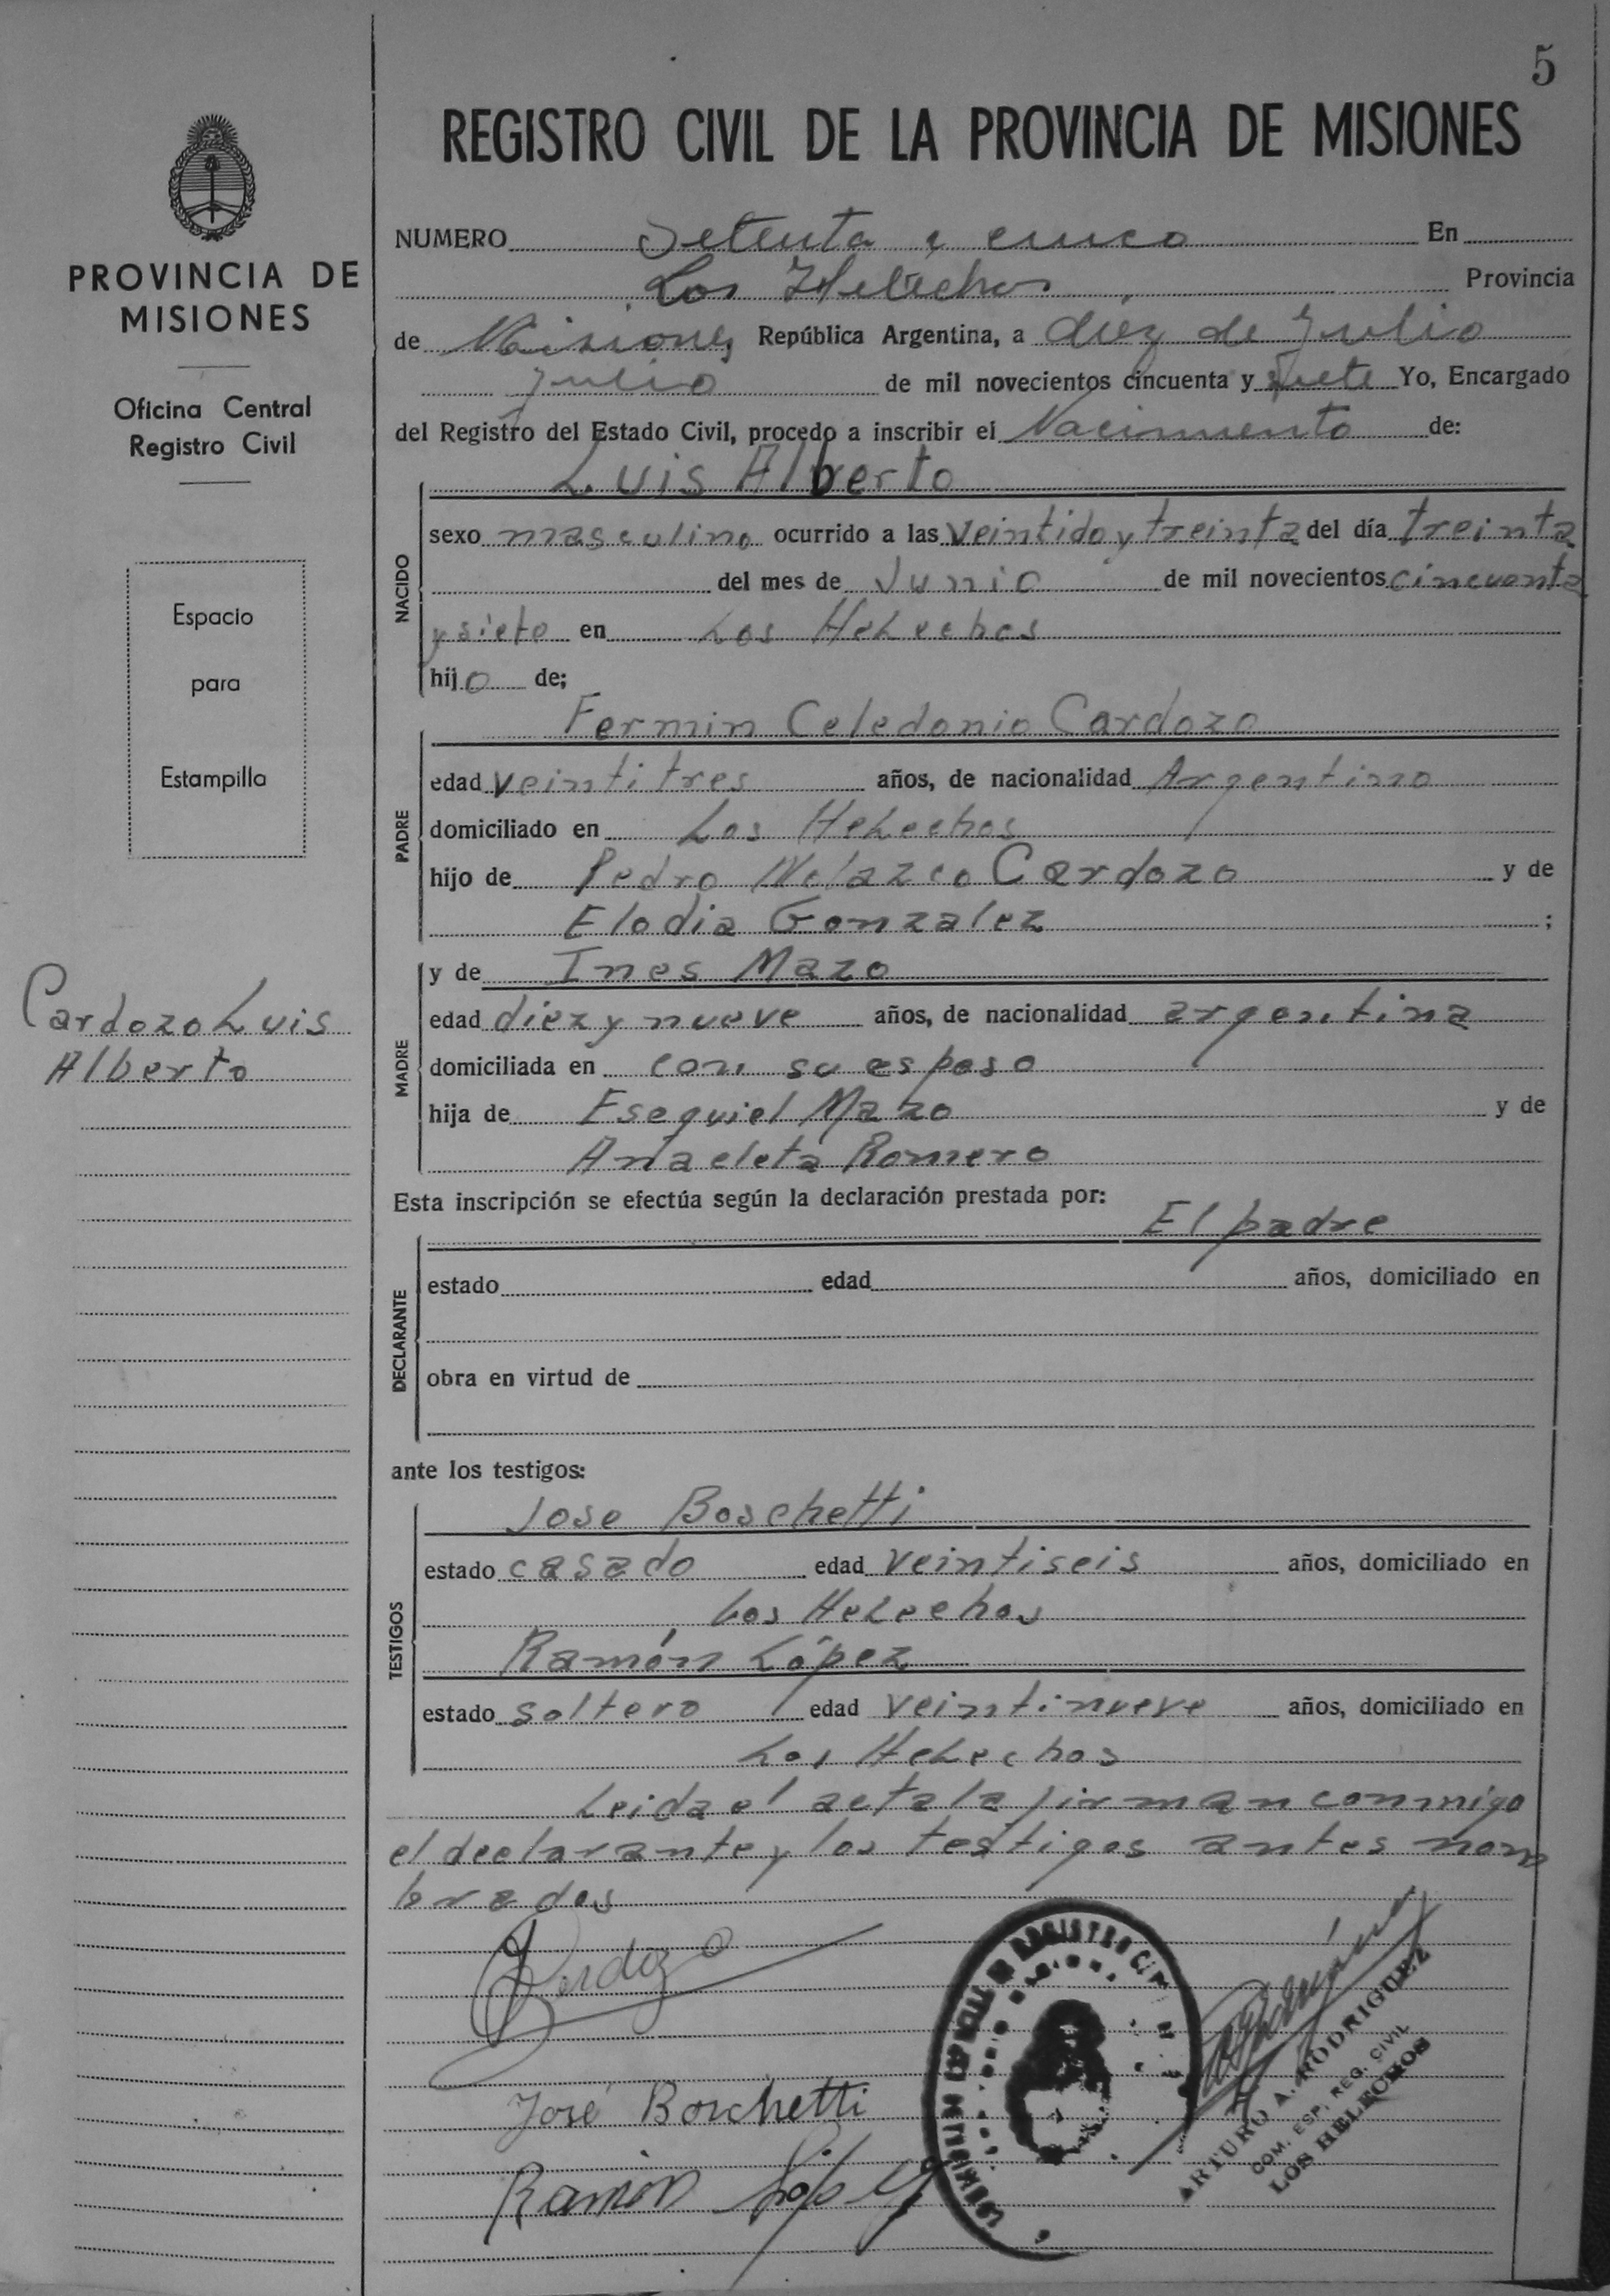 5
REGISTRO CIVIL DE LA PROVINCIA DE MISIONES
PROVINCIA DE
MISIONES
Oficina Central
Registro Civil
Espacio
para
Estampilla
Cardozo Luis
Alberto
NUMERO Setenta y cinco En
Los Helechos Provincia
de Misiones República Argentina, a diéz de Julio
Julio de mil novecientos cincuenta y siete Yo, Encargado
del Registro del Estado Civil, procedo a inscribir el Nacimiento de:
Luis Alberto
NACIDO
sexo masculino ocurrido a las veintido y treinta del día treinta
del mes de Junio de mil novecientos cincuenta
y siete en Los Helechos
hijo de;
Fermin Celedonio Cardozo
PADRE
edad veintitres años, de nacionalidad Argentino
domiciliado en Los Helechos
hijo de Pedro Cardozo y de
Elodia Gonzalez ;
MADRE
y de Ines Mazo
edad diez y nueve años, de nacionalidad argentina
domiciliada en con su esposo
hija de Esequiel Mazo y de
Anacleta Romero
Esta inscripción se efectúa según la declaración prestada por:
El padre
DECLARANTE
estado edad años, domiciliado en
obra en virtud de
ante los testigos:
Jose Boschetti
TESTIGOS
estado casado edad veintiseis años, domiciliado en
Los Helechos
Ramón López
estado soltero edad veintinueve años, domiciliado en
Los Helechos
Leida el acta la firman conmigo
el declarante y los testigos antes nom
brados
Cardozo
José Boschetti
Ramón López
ARTURO A. RODRIGUEZ
COM. ESP. REG. CIVIL
LOS HELECHOS